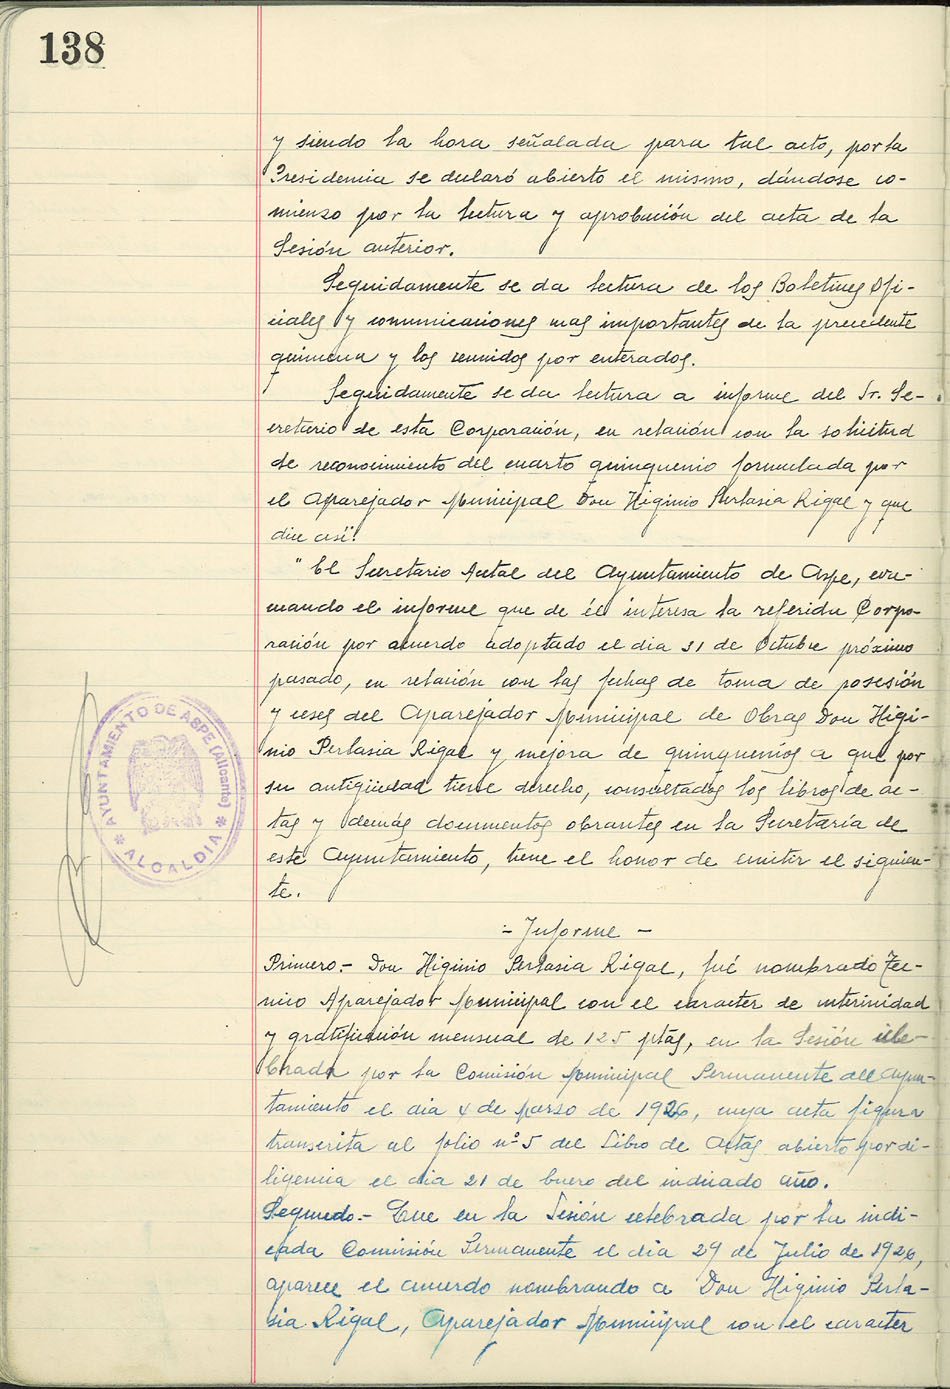 138
y siendo la hora señalada para tal acto, por la
Presidencia se declaró abierto el mismo, dándose co-
mienzo por la lectura y aprobación del acta de la
Sesión anterior.
Seguidamente se da lectura de los Boletines Ofi-
ciales y comunicaciones mas importantes de la precedente
quincena y los reunidos por enterados.
Seguidamente se da lectura a informe del Sr. Se-
cretario de esta Corporación, en relación con la solicitud
de reconocimiento del cuarto quinquenio formulada por
el Aparejador Municipal Don Higinio Perlasia Rigal y que
dice así:
"El Secretario Actal del Ayuntamiento de Aspe, eva-
cuando el informe que de él interesa la referida Corpo-
ración por acuerdo adoptado el dia 31 de Octubre próximo
pasado, en relación con las fechas de toma de posesión
y ceses del Aparejador Municipal de Obras Don Higi-
nio Perlasia Rigal y mejora de quinquenios a que por
su antigüedad tiene derecho, consultados los libros de ac-
tas y demás documentos obrantes en la Secretaría de
este Ayuntamiento, tiene el honor de emitir el siguien-
te.
AYUNTAMIENTO DE ASPE (Alicante)
* ALCALDIA *
:- Informe -
Primero.- Don Higinio Perlasia Rigal, fué nombrado Tec-
nico Aparejador Municipal con el caracter de interinidad
y gratificación mensual de 125 ptas, en la Sesión cele-
brada por la Comisión Municipal Permanente del Ayun-
tamiento el dia 4 de marzo de 1926, cuya acta figura
transcrita al folio nº 5 del Libro de Actas abierto por di-
ligencia el dia 21 de Enero del indicado año.
Segundo.- Que en la Sesión celebrada por la indi-
cada Comisión Permanente el dia 29 de Julio de 1926,
aparece el acuerdo nombrando a Don Higinio Perla-
sia Rigal, Aparejador Municipal con el caracter